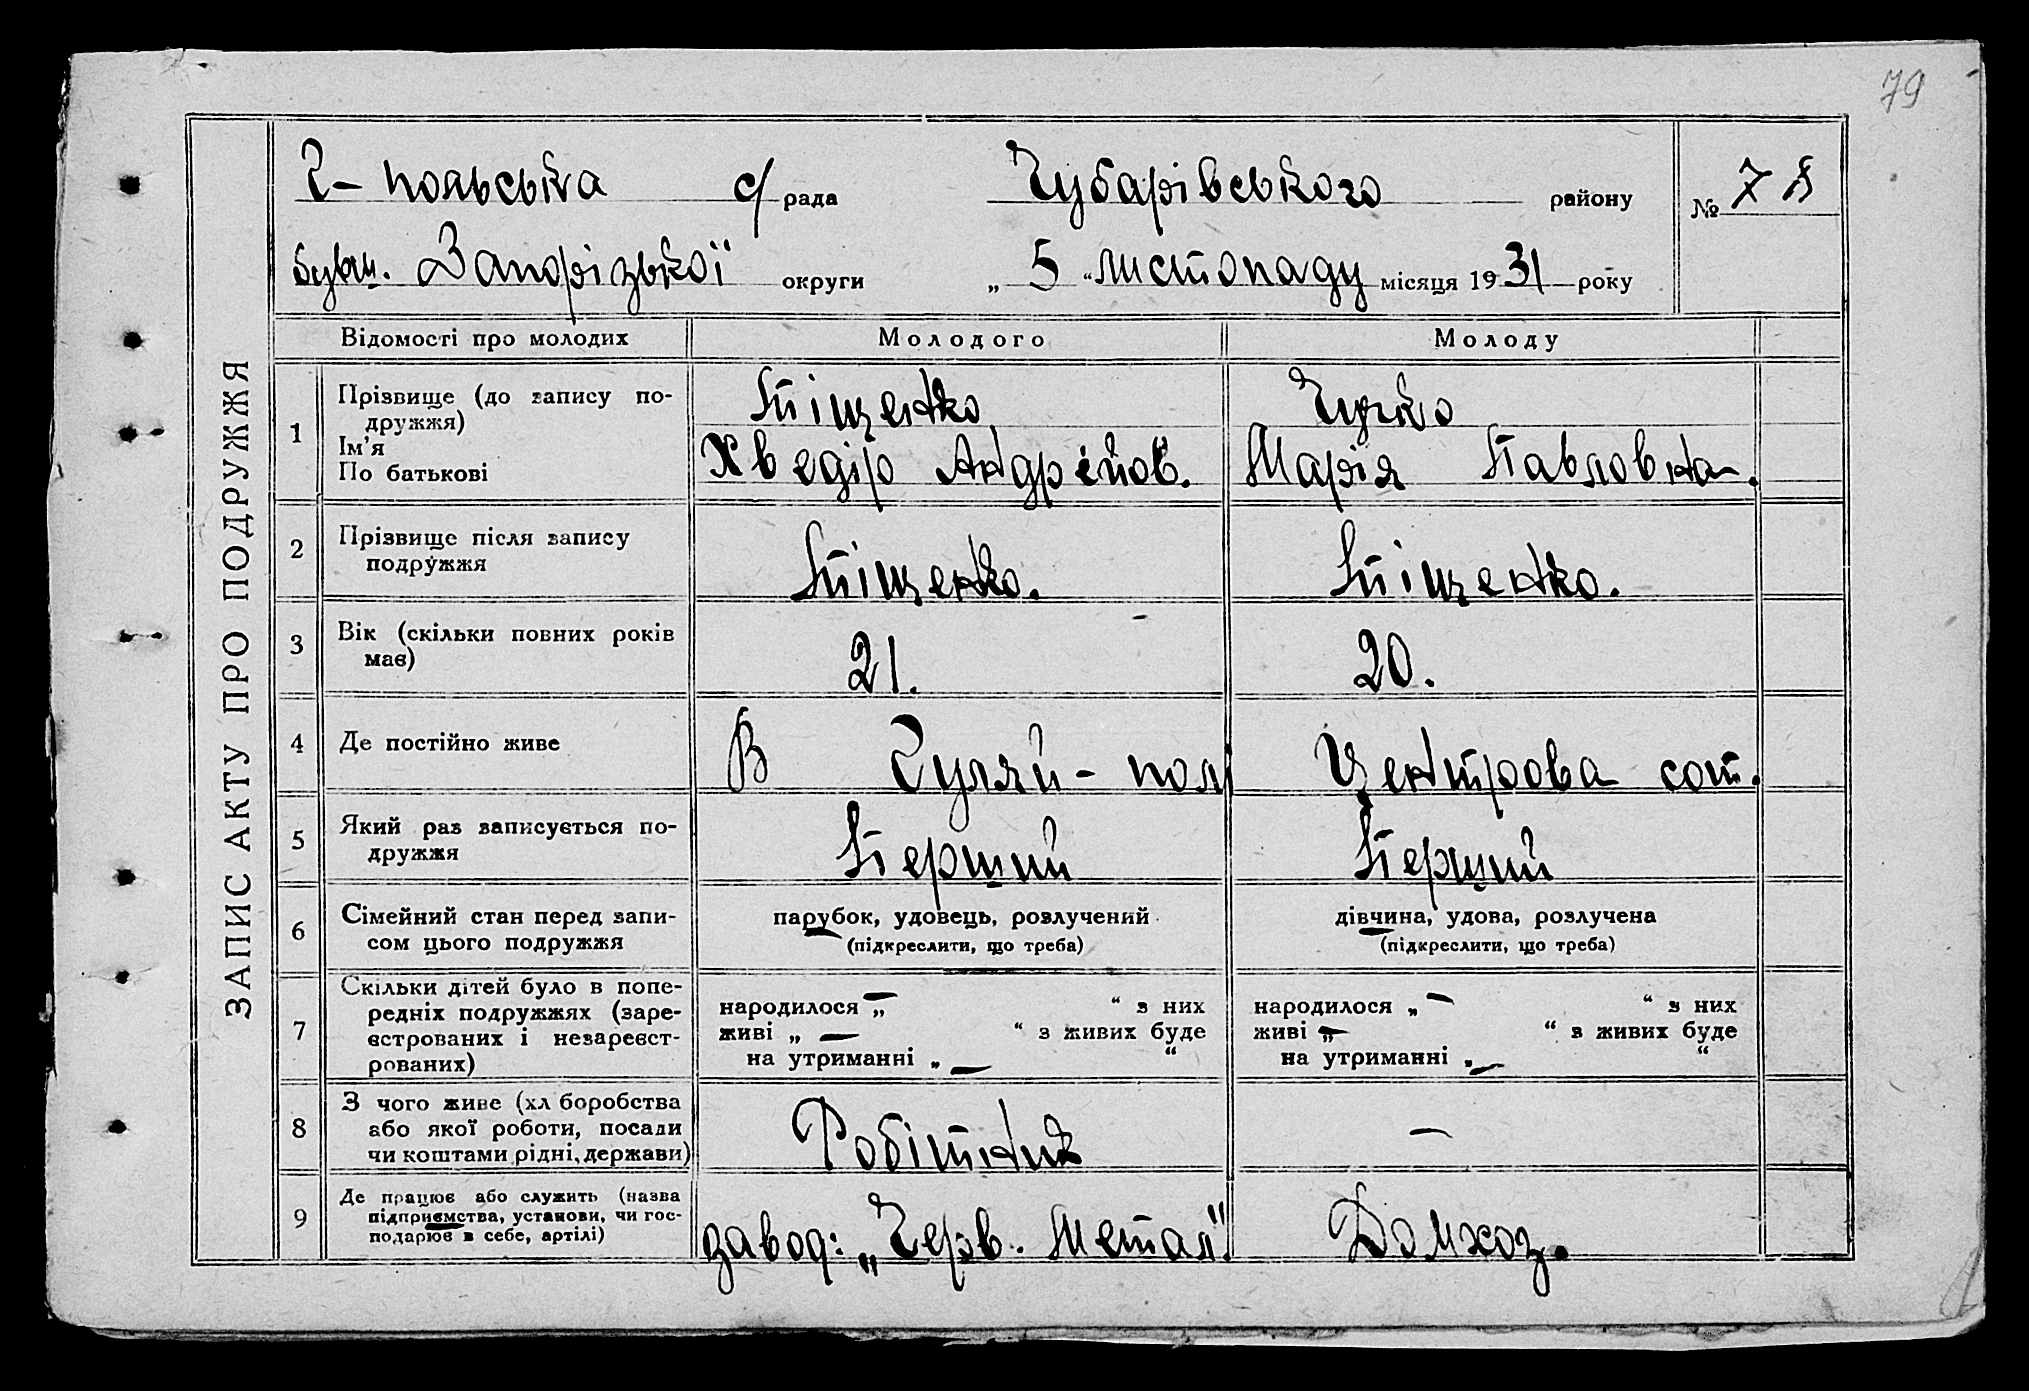 79
Г-польська с/рада Чубарівського району № 78
бувш. Запорізької округи „ 5 “ листопаду місяця 1931 року
ЗАПИС АКТУ ПРО ПОДРУЖЖЯ
Відомості про молодих Молодого Молоду
1 Прізвище (до запису по-
дружжя)
Ім'я
По батькові
Тіщенко
Хведір Андрійов.
Марія Павловна.
2 Прізвище після запису
подружжя
Тіщенко. Тіщенко.
3 Вік (скільки повних років
має)
21. 20.
4 Де постійно живе В Гуляй-полі Центрова сот.
5 Який раз записується по-
дружжя
Перший Перший
6 Сімейний стан перед запи-
сом цього подружжя
парубок, удовець, розлучений
(підкреслити, що треба)
дівчина, удова, розлучена
(підкреслити, що треба)
7 Скільки дітей було в попе-
редніх подружжях (заре-
єстрованих і незареєст-
рованих)
народилося „ — “ з них
живі „ — “ з живих буде
на утриманні „ — “
народилося „ — “ з них
живі „ — “ з живих буде
на утриманні „ — “
8 З чого живе (хліборобства
або якої роботи, посади
чи коштами рідні, держави)
Робітник —
9 Де працює або служить (назва
підприємства, установи, чи гос-
подарює в себе, артілі)
завод: „Черв. Метал“. Домхоз.